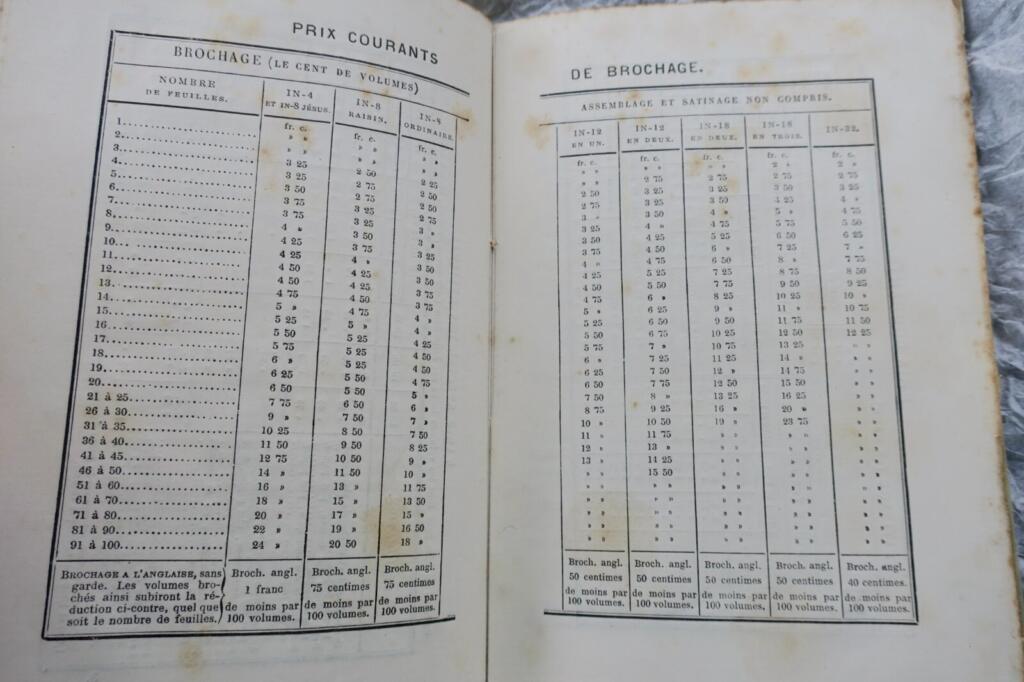 PRIX COURANTS
BROCHAGE (LE CENT DE VOLUMES)
NOMBRE DE FEUILLES. IN-4 ET IN-8 JÉSUS. IN-8 RAISIN. IN-8 ORDINAIRE.
fr. c. fr. c. fr. c.
1 » » » » » »
2 » » » » » »
3 3 25 2 50 2 25
4 3 25 2 75 2 50
5 3 50 2 75 2 50
6 3 75 3 25 2 75
7 3 75 3 25 3 »
8 4 » 3 50 3 »
9 4 25 3 75 3 25
10 4 25 4 » 3 50
11 4 50 4 25 3 50
12 4 50 4 50 3 75
13 4 75 4 50 3 75
14 5 » 4 75 4 »
15 5 25 5 » 4 »
16 5 50 5 25 4 25
17 5 75 5 25 4 50
18 6 » 5 25 4 50
19 6 25 5 50 4 75
20 6 50 5 50 5 »
21 à 25 7 75 6 50 6 »
26 à 30 9 » 7 50 7 »
31 à 35 10 25 8 50 7 50
36 à 40 11 50 9 50 8 25
41 à 45 12 75 10 50 9 »
46 à 50 14 » 11 50 10 »
51 à 60 16 » 13 » 11 75
61 à 70 18 » 15 » 13 50
71 à 80 20 » 17 » 15 »
81 à 90 22 » 19 » 16 50
91 à 100 24 » 20 50 18 »
BROCHAGE A L'ANGLAISE, sans
garde. Les volumes bro-
chés ainsi subiront la ré-
duction ci-contre, quel que
soit le nombre de feuilles.
Broch. angl. 1 franc de moins par 100 volumes.
Broch. angl. 75 centimes de moins par 100 volumes.
Broch. angl. 75 centimes de moins par 100 volumes.
DE BROCHAGE.
ASSEMBLAGE ET SATINAGE NON COMPRIS.
IN-12 EN UN. IN-12 EN DEUX. IN-18 EN DEUX. IN-18 EN TROIS. IN-32.
fr. c. fr. c. fr. c. fr. c. fr. c.
» » » » » » 2 » 2 »
» » 2 75 2 75 2 75 2 75
2 50 3 25 3 25 3 50 3 25
2 75 3 25 3 50 4 25 4 »
3 » 3 50 4 » 5 » 4 75
3 25 4 » 4 75 5 75 5 50
3 50 4 25 5 25 6 50 6 25
3 75 4 50 6 » 7 25 7 »
4 » 4 75 6 50 8 » 7 75
4 25 5 25 7 25 8 75 8 50
4 50 5 50 7 75 9 50 9 25
4 75 6 » 8 25 10 25 10 »
5 » 6 50 9 » 11 » 10 75
5 25 6 50 9 50 11 75 11 50
5 50 6 75 10 25 12 50 12 25
5 75 7 » 10 75 13 25 » »
6 » 7 25 11 25 14 » » »
6 25 7 50 12 » 14 75 » »
6 50 7 75 12 50 15 50 » »
7 50 8 » 13 25 16 25 » »
8 75 9 25 16 » 20 » » »
10 » 10 50 19 » 23 75 » »
11 » 11 75 » » » » » »
12 » 13 » » » » » » »
13 » 14 25 » » » » » »
» » 15 50 » » » » » »
» » » » » » » » » »
» » » » » » » » » »
» » » » » » » » » »
» » » » » » » » » »
» » » » » » » » » »
Broch. angl. 50 centimes de moins par 100 volumes.
Broch. angl. 50 centimes de moins par 100 volumes.
Broch. angl. 50 centimes de moins par 100 volumes.
Broch. angl. 50 centimes de moins par 100 volumes.
Broch. angl. 40 centimes. de moins par 100 volumes.